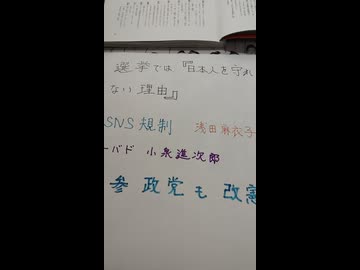 選挙では『日本人を守れ
ない理由』
SNS規制 浅田麻衣子
ーバド 小泉進次郎
参政党も改憲